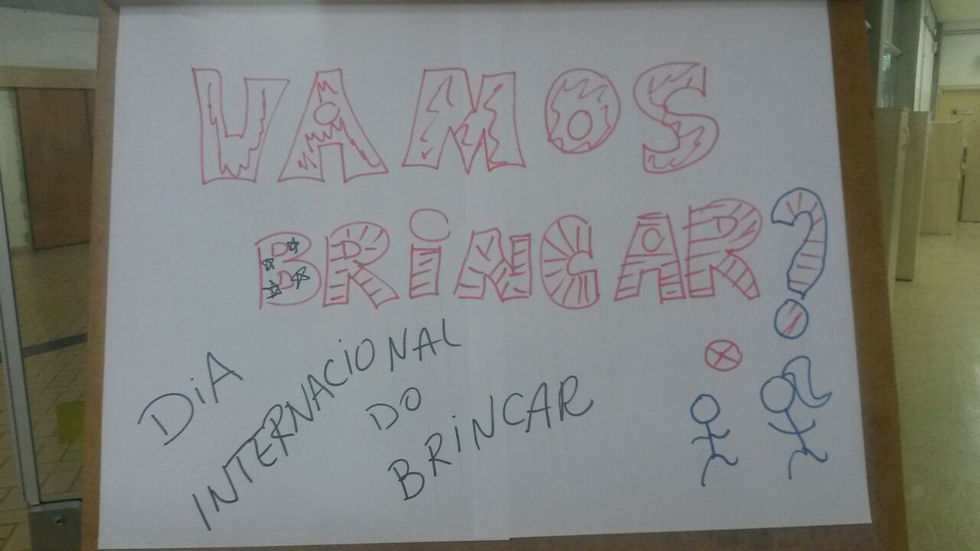 VAMOS
BRiNCAR?
DiA
INTERNACIONAL
DO
BRiNCAR